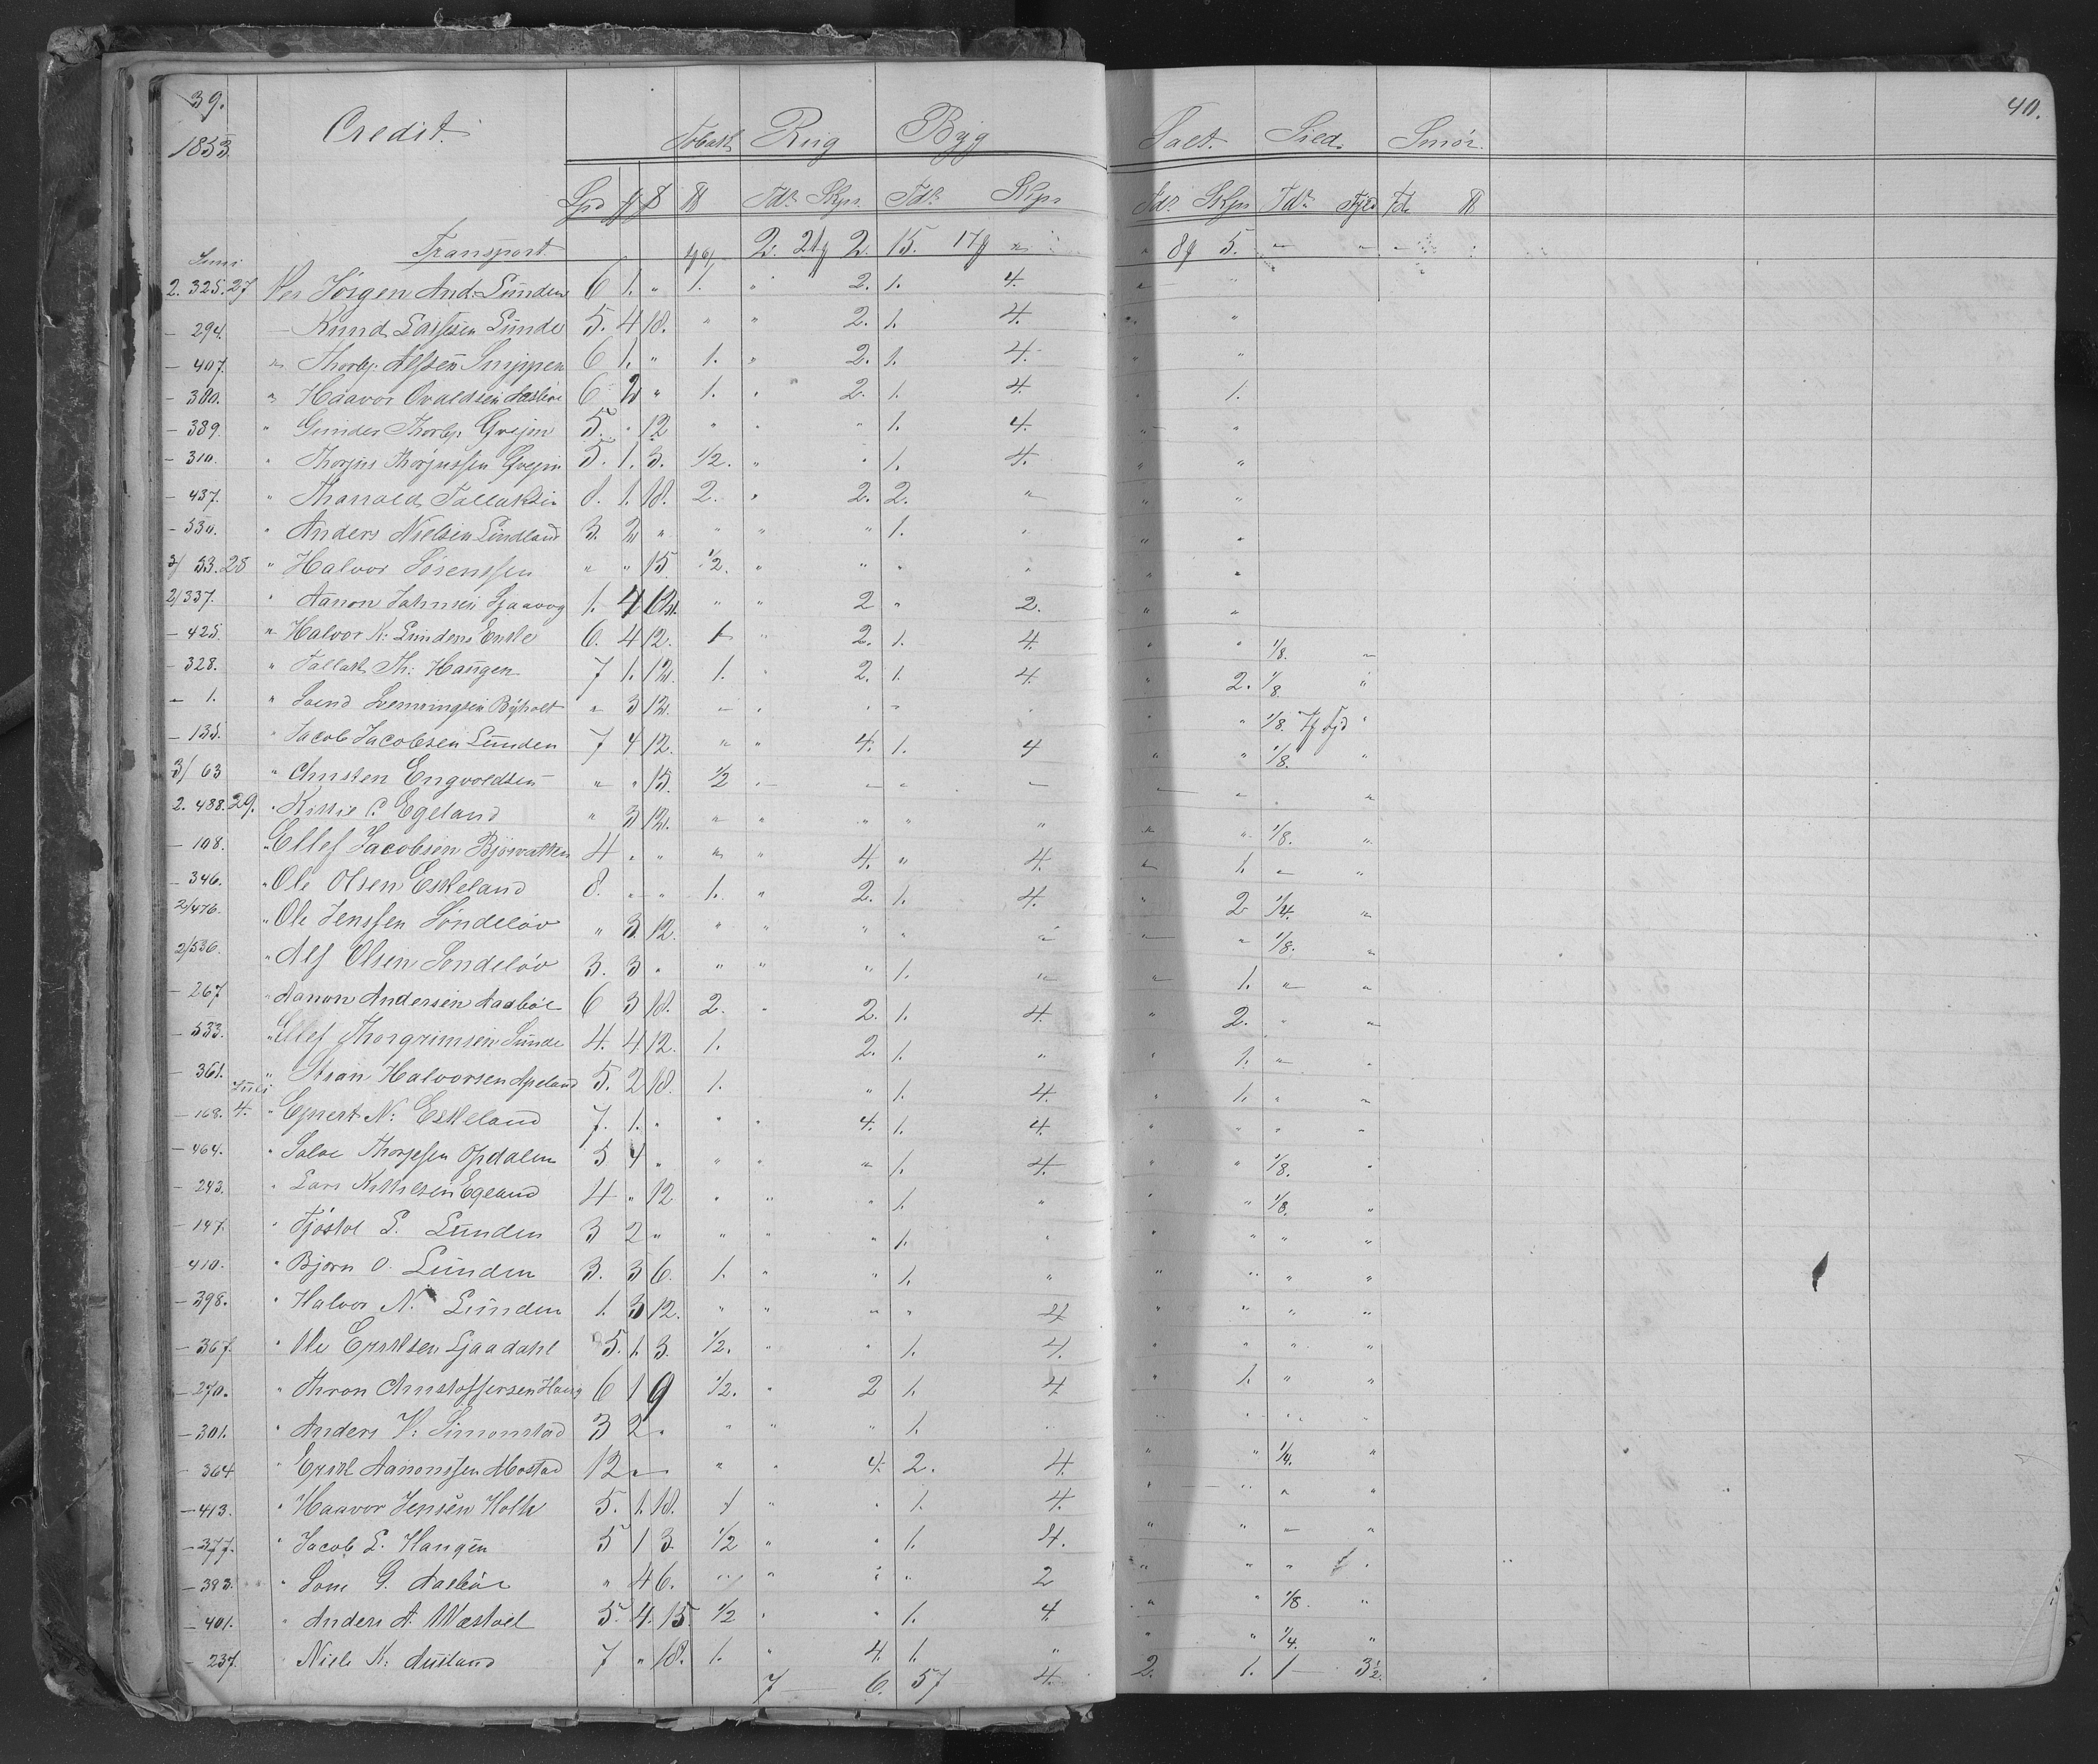 39. 40.
1853. Credit. Tobak Rug Byg Salt. Sild. Smör.
Spd ℔ Tdr Skpr. Tdr Skpr Tdr Skpr Tdr Fjd ℔
Transport 2. 2. 15. 5.
2. 325. 27 Per Jörgen And: Lunden 6 1. " 1. " 2. 1. 4. " "
- 294. Knud Larssen Lunde 5. 4 18. " " 2. 1. 4. " "
- 407. " Thorbj: Alfsen 6 1. " 1. " 2. 1. 4. " "
- 300. " Haavor Ovaldsen Aasböe 6 2 " 1. " 2. 1. 4. " 1.
- 389. " Gunder Thorbj: 5. " 12 " " " 1. 4. " "
- 310. " Thorjus Thorjussen 5. 1. 3. 1/2. " " 1. 4. " "
- 437. " Tharald Tallaksen 8. 1. 18. 2. " 2. 2. " " "
- 530. " Anders Nielsen Lindland 3. 2 " " " " 1. " " "
3/ 33. 28 " Halvor Sörenssen " " 15 1/2. " " " " " "
2/ 337. " Aanon Jahnsen 1. 4 12. " " 2 " 2. " "
- 425. " Halvor K: Lundens Enke 6. 4 12. 1 " 2. 1. 4. " " 1/8. "
- 328. " Tallak Th: Haugen 7 1. 12. 1. " 2. 1. 4. " 2. 1/8. "
- 1. " Svend " 3 12. " " " " " " " 1/8. "
- 135. " Jacob Jacobsen Lunden 7 4 12. " " 4. 1. 4 " " 1/8. "
3/ 63 " Christen Engvoldsen " " 15. 1/2 " " " " " " "
2. 488. 29. " Kittil C. Egeland " 3 12. " " " " " " " 1/8. "
- 108. " Ellef Jacobsen 4 " " " " 4. " 4. " 1. " "
- 346. " Ole Olsen Eskeland 8. " " 1. " 2. 1. 4. " 2 1/4. "
2/476. " Ole Jenssen Söndelöv " 3. 12. " " " " " " " 1/8. "
2/536. " Alf Olsen Söndelöv 3. 3 " " " " 1. " " 1. " "
- 267 " Aanon Andersen Aasböe 6 3 18. 2. " 2. 1. 4. " 2. " "
- 533. " Ellef Thorgrimsen Lunde 4. 4 12. 1. 2. 1. " " 1. " "
- 361. " Halvorsen Apeland 5. 2 18. 1. " 1. 4 " 1. " "
- 168. Juli 4. " Ejvert N: Eskeland 7. 1. " " " 4. 1. 4. " " " "
- 464. " Salve Thorjesen Opdalen 5 4 " " " " 1. 4. " " 1/8. "
- 243. " Lars Kittilsen Egeland 4 " 12 " " " 1. " " " 1/8. "
- 147. " Tjöstol L. Lunden 3 2 " " " " 1. " " " " "
- 410. " Björn O. Lunden 3. 3 6. 1. " " 1. " " " " "
- 398. " Halvor N. Lunden 1. 3 12. " " " " 4 " " " "
- 367. " Ole Erikksen Ljaadahl 5. 1. 3. 1/2. " " 1. 4. " " " "
- 270. " Thron Christoffersen Haug 6 1 9 1/2. " 2 1. 4 " 1. " "
- 301. " Anders K: Simonstad 3 2 " " " " 1. " " " " "
- 364 " Aanonssen Mostad 12 " " " 4. 2. 4. " " 1/4. "
- 413. " Haavor Jensen Holte 5. 1. 18. 1 " " 1. 4. " " " "
- 377. " Jacob L. Haugen 5 1 3. 1/2 " " 1. 4. " " " "
- 393. " G. Aasböe " 4 6. " " " " 2 " " " "
- 401. " Anders A. Westöel 5. 4. 15. 1/2 " " 1. 4 " " 1/8. "
- 237. " Niels K. Ausland 7 " 18. 1. " 4. 1. " " " 1/4. "
7 6. 57 4. 2. 1. 1 3 1/2.